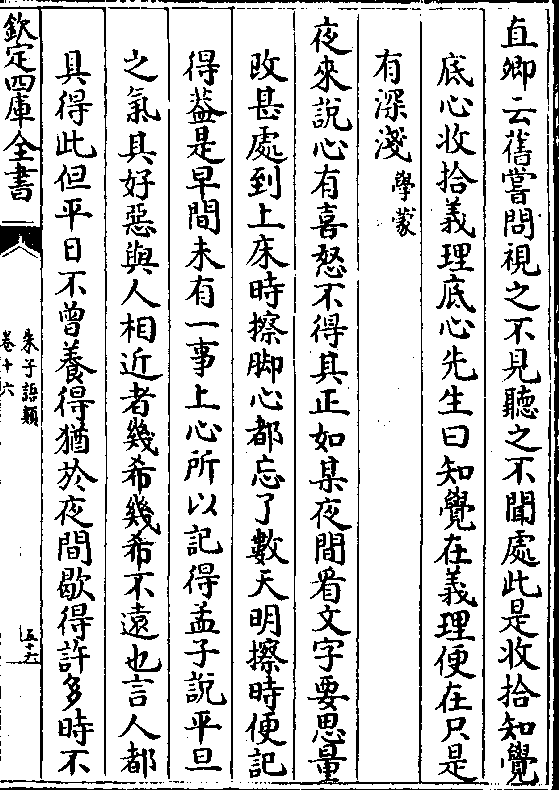 直卿云舊嘗問視之不見聽之不聞處此是收拾知覺
底心收拾義理底心先生曰知覺在義理便在只是
有深淺學蒙
夜來說心有喜怒不得其正如某夜間看文字要思量
改甚處到上床時擦脚心都忘了數天明擦時便記
得葢是早間未有一事上心所以記得孟子說平旦
之氣其好惡與人相近者幾希幾希不遠也言人都
具得此但平日不曾養得猶於夜間歇得許多時不
欽定四庫全書
朱子語類
卷十六
五十六